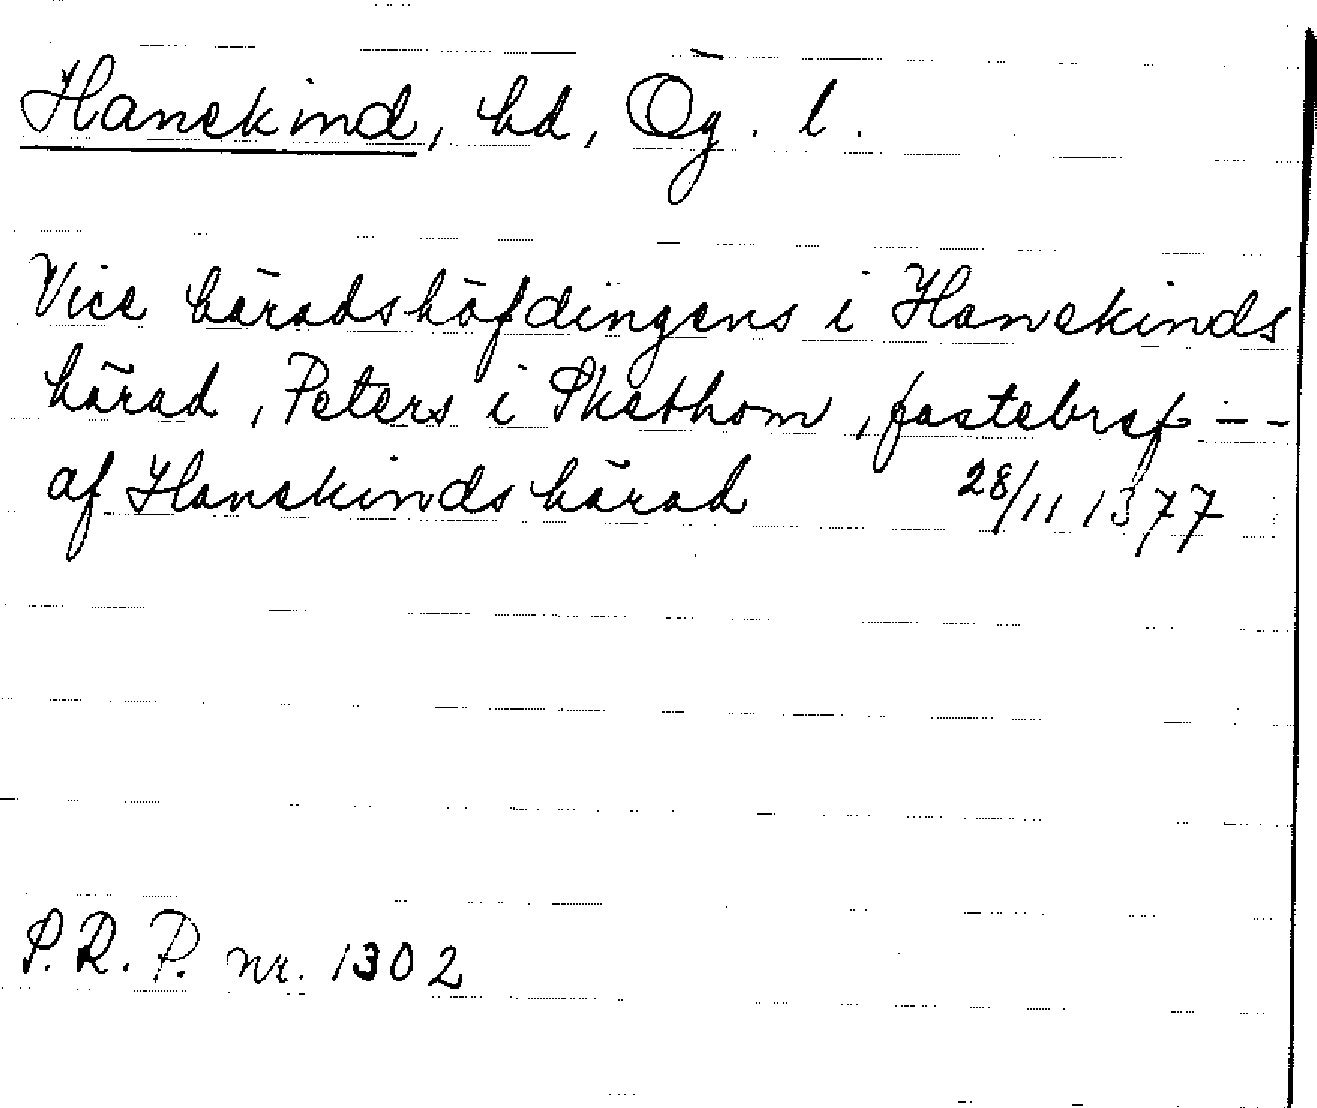 Hanekind, hd, Ög. l.
Vice häradshöfdingens i Hanekinds
härad, Peters i Skethom, fastebref --
af Hanekinds härad 28/11 1377
S.R.P. nr. 1302